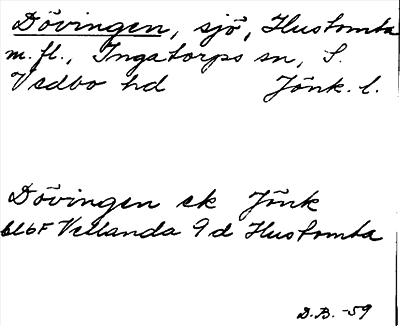 Dövingen, sjö, Hustomta
m.fl., Ingatorps sn, S.
Vedbo hd Jönk. l.
Dövingen ek Jönk
6E6F Vetlanda 9d Hustomta
D.B. -59